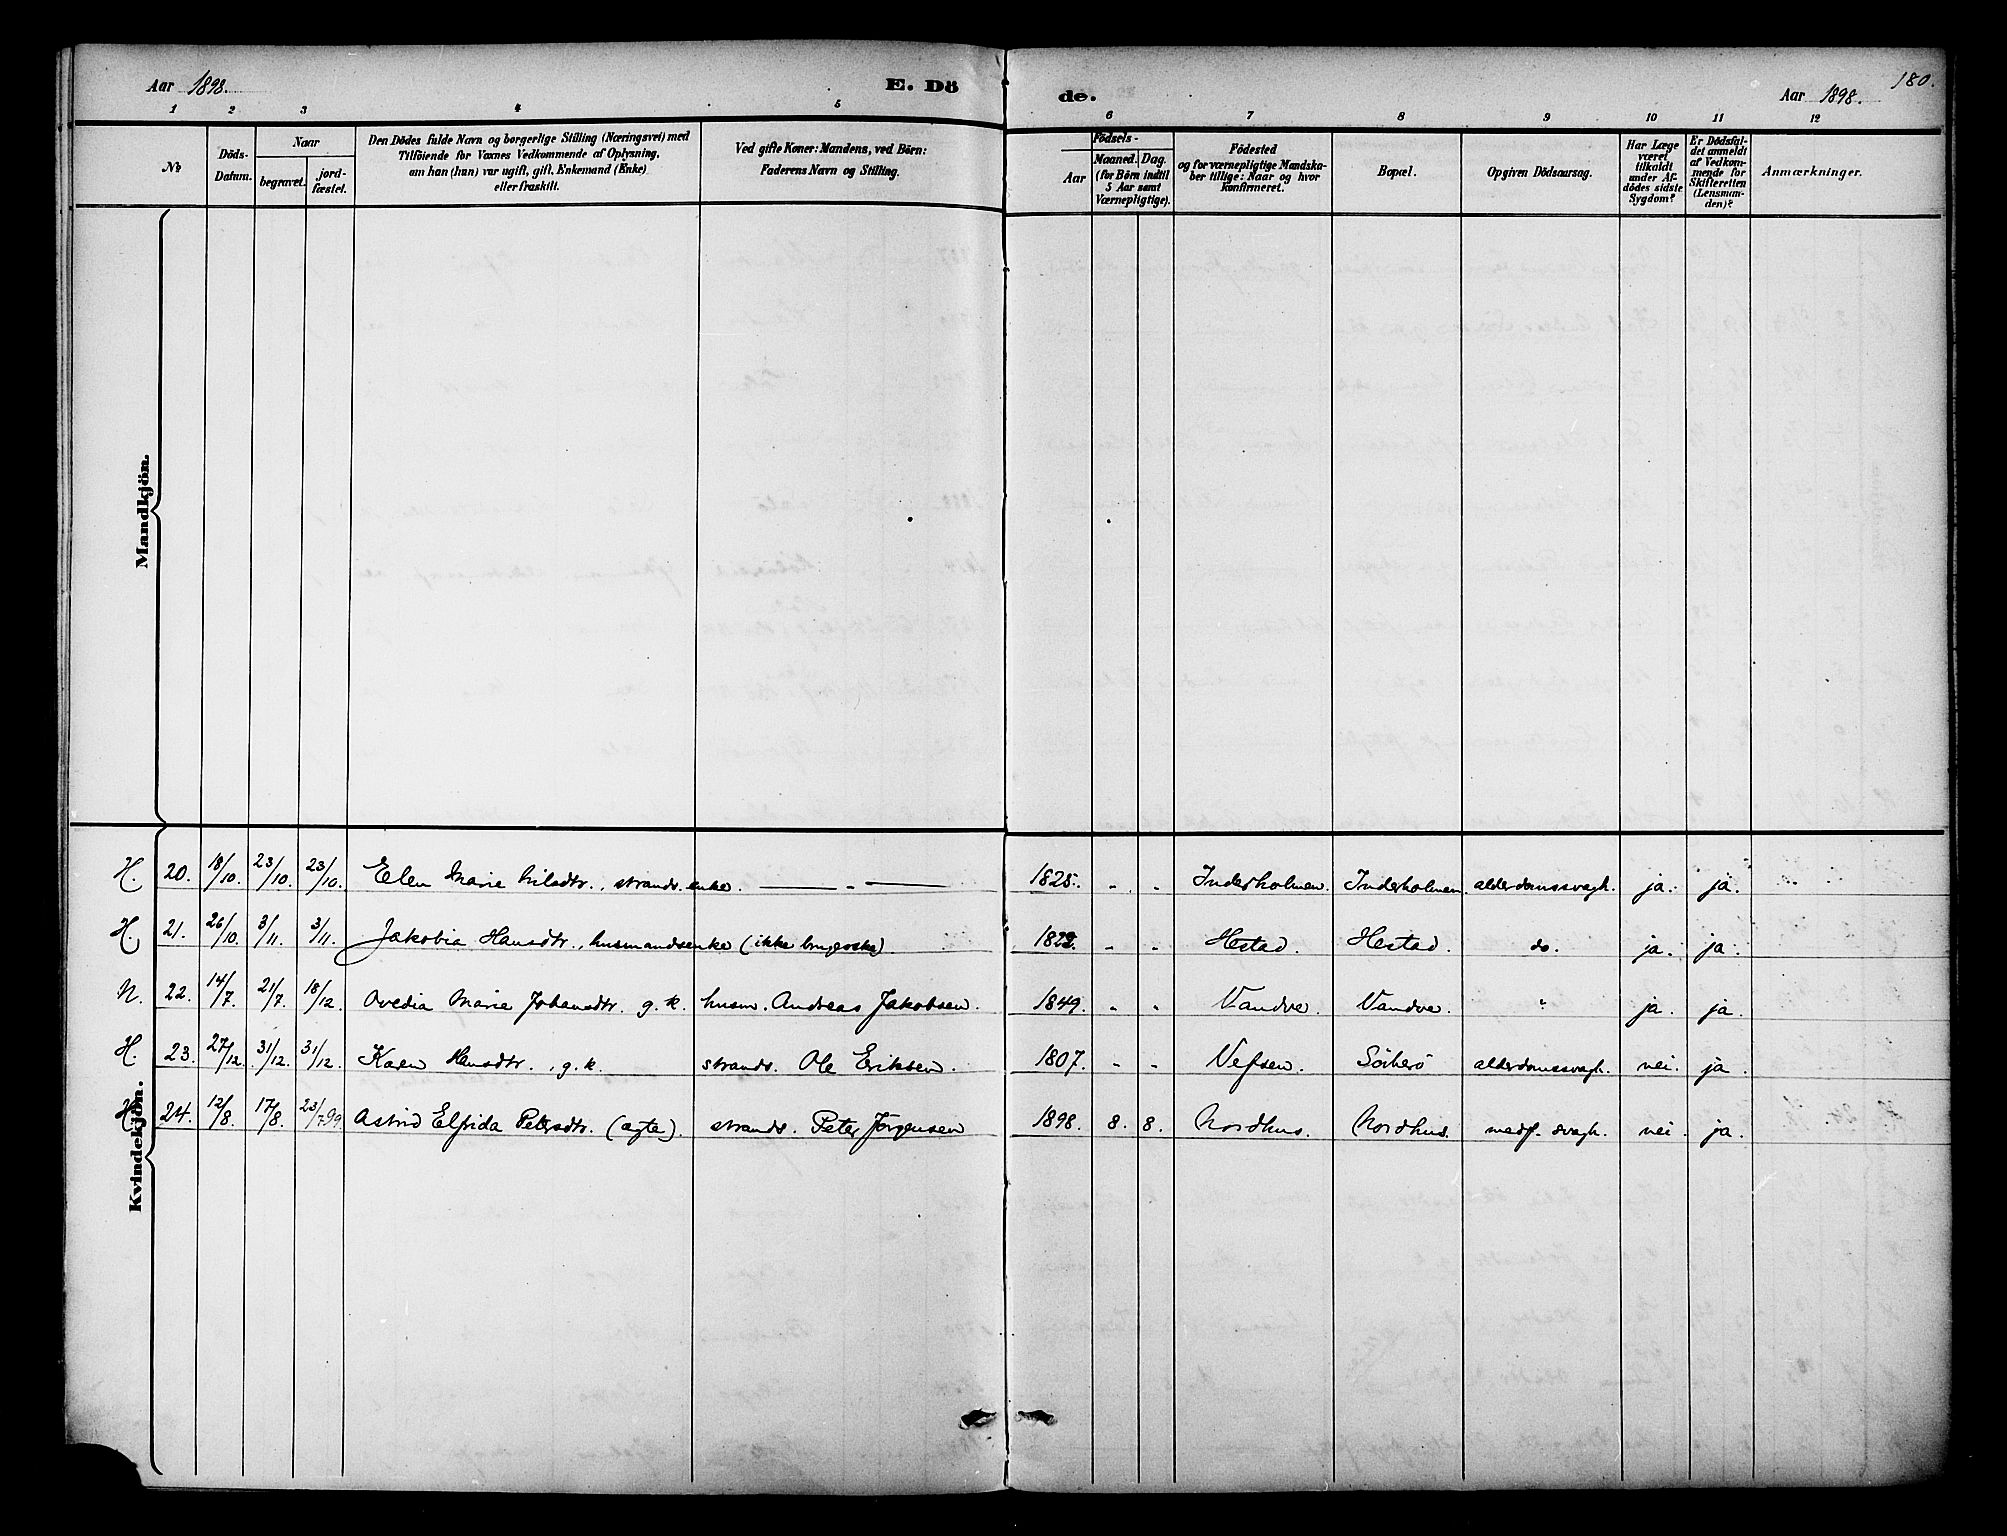 Aar 1898. E. Dö de. Aar 1898. 180.
1 2 3 4 5 6 7 8 9 10 11 12
No
Döds-Datum.
Naar
begravet.
jordfæstet.
Den Dödes fulde Navn og borgerlige Stilling (Næringsvei) med
Tilföiende for Voxnes Vedkommende af Oplysning,
om han (hun) var ugift, gift, Enkemand (Enke)
eller fraskilt.
Ved gifte Koner: Mandens, ved Börn:
Faderens Navn og Stilling.
Födsels-
Aar
Maaned. Dag.
(for Börn indtil
5 Aar samt
Værnepligtige).
Födested
og for værnepligtige Mandska-
ber tillige: Naar og hvor
konfirmeret.
Bopæl.
Opgiven Dödsaarsag.
Har Læge
været
tilkaldt
under Af-
dödes sidste
Sygdom?
Er Dödsfal-
det anmeldt
af Vedkom-
mende for
Skifteretten
(Lensman-
den)?
Anmærkninger.
Mandkjön.
Kvindekjön.
H. 20. 18/10. 23/10. 23/10. Elen Marie Nilsdtr., strands. enke. — „ — 1825. „ „ Inderholmen. Inderholmen. alderdomssvagh. ja. ja.
H. 21. 26/10. 3/11. 3/11. Jakobia Hansdtr., husmandsenke (ikke brugerske). „ „ Hestad. Hestad. do. ja. ja.
N. 22. 14/7. 21/7. 18/12. Ovedia Marie Johansdtr. g. k. husm. Andreas Jakobsen. 1849. „ „ Vandve. Vandve. " ja. ja.
H. 23. 27/12. 31/12. 31/12. Karen Hansdtr., g. k. strands. Ole Eriksen. 1807. „ „ Vefsen. alderdomssvagh. nei. ja.
H. 24. 12/8. 17/8. 23/7.99. Astrid Elfrida Petersdtr. (ægte). strands. Peter Jörgensen 1898. 8. 8. Nordhus. Nordhus. medf. svagh. nei. ja.